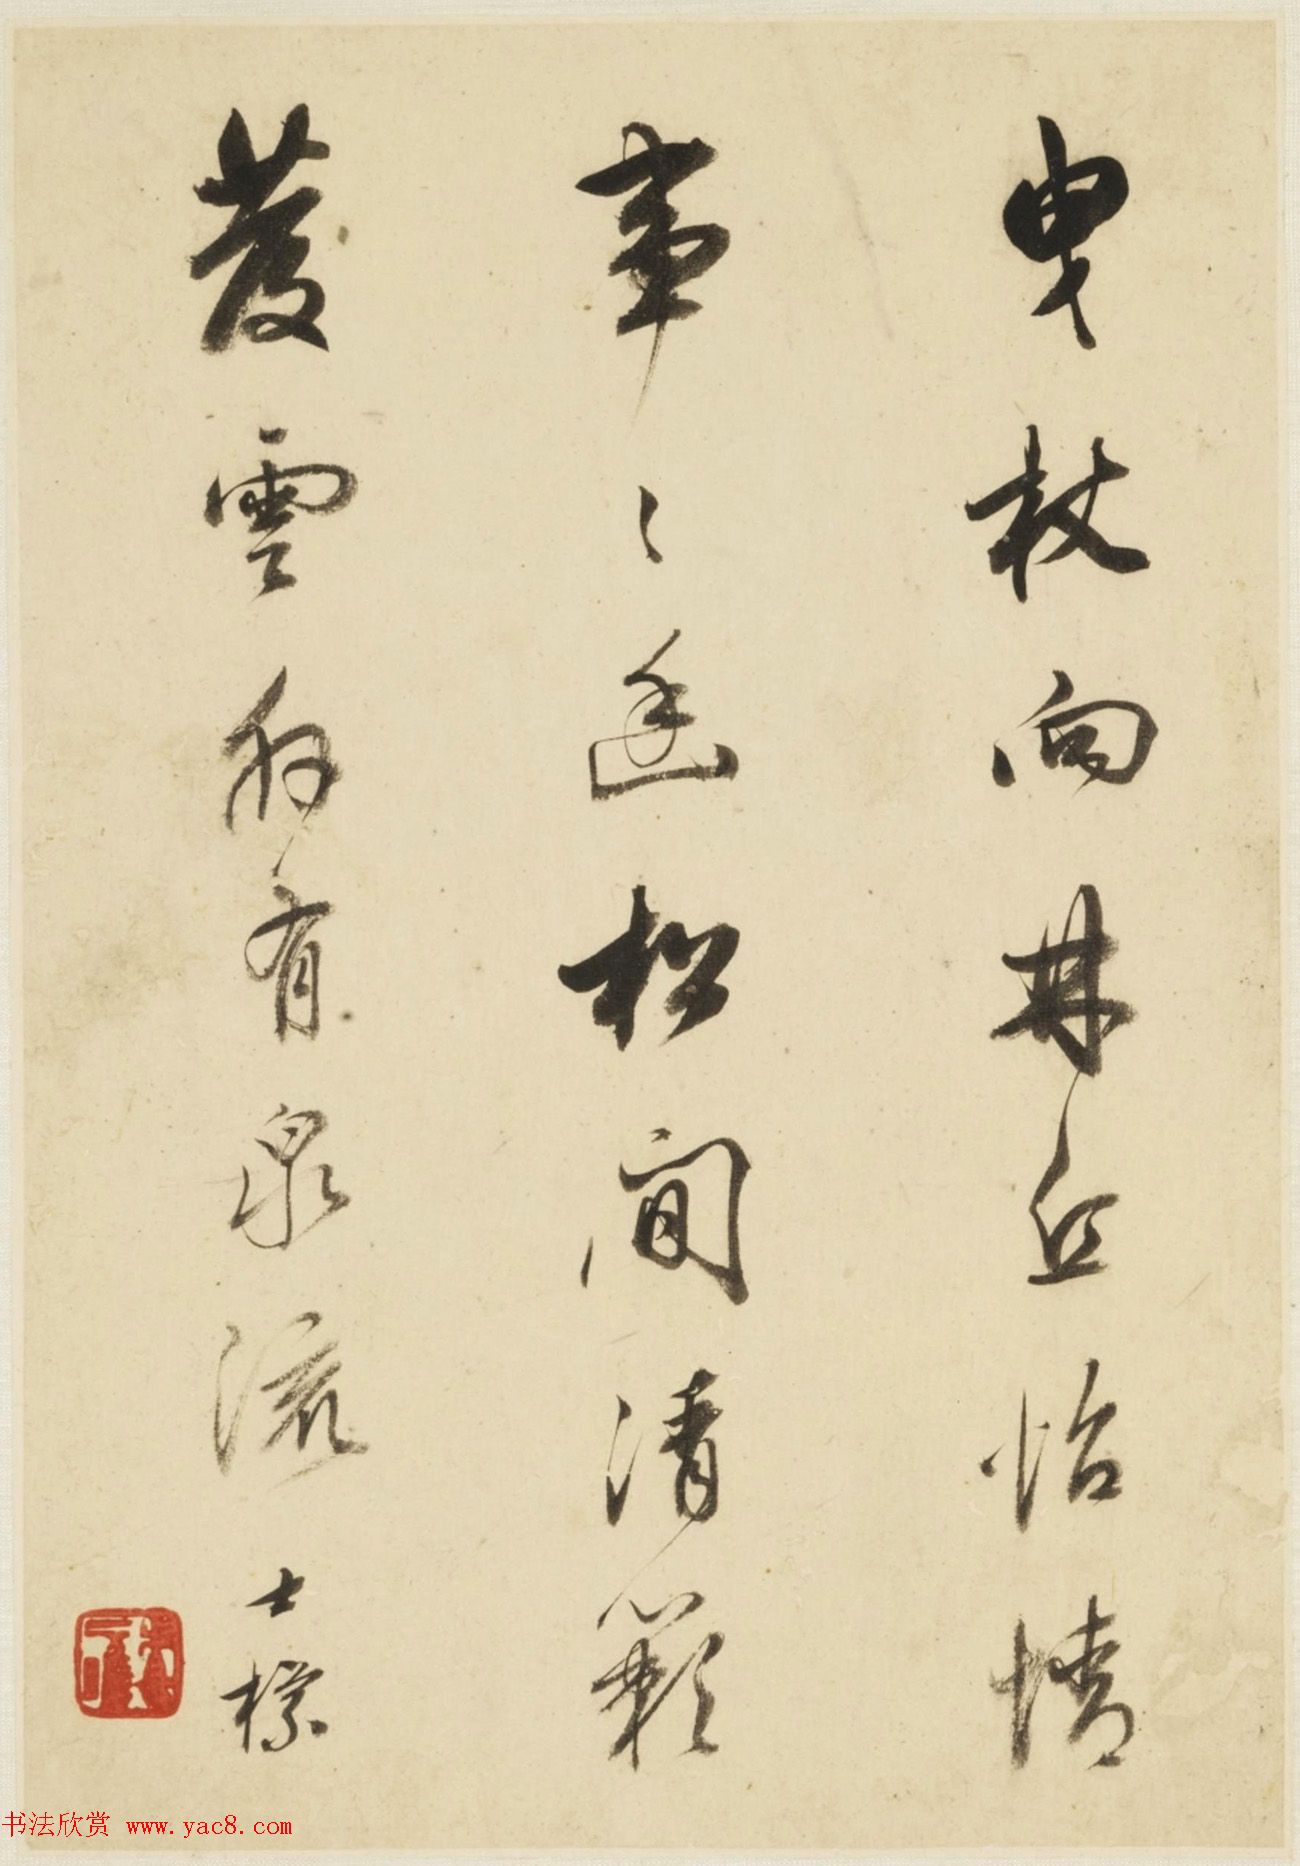 曳杖向林丘怡情
事々幽松間清籟
發雲外有泉流 士標
书法欣赏 www.yac8.com